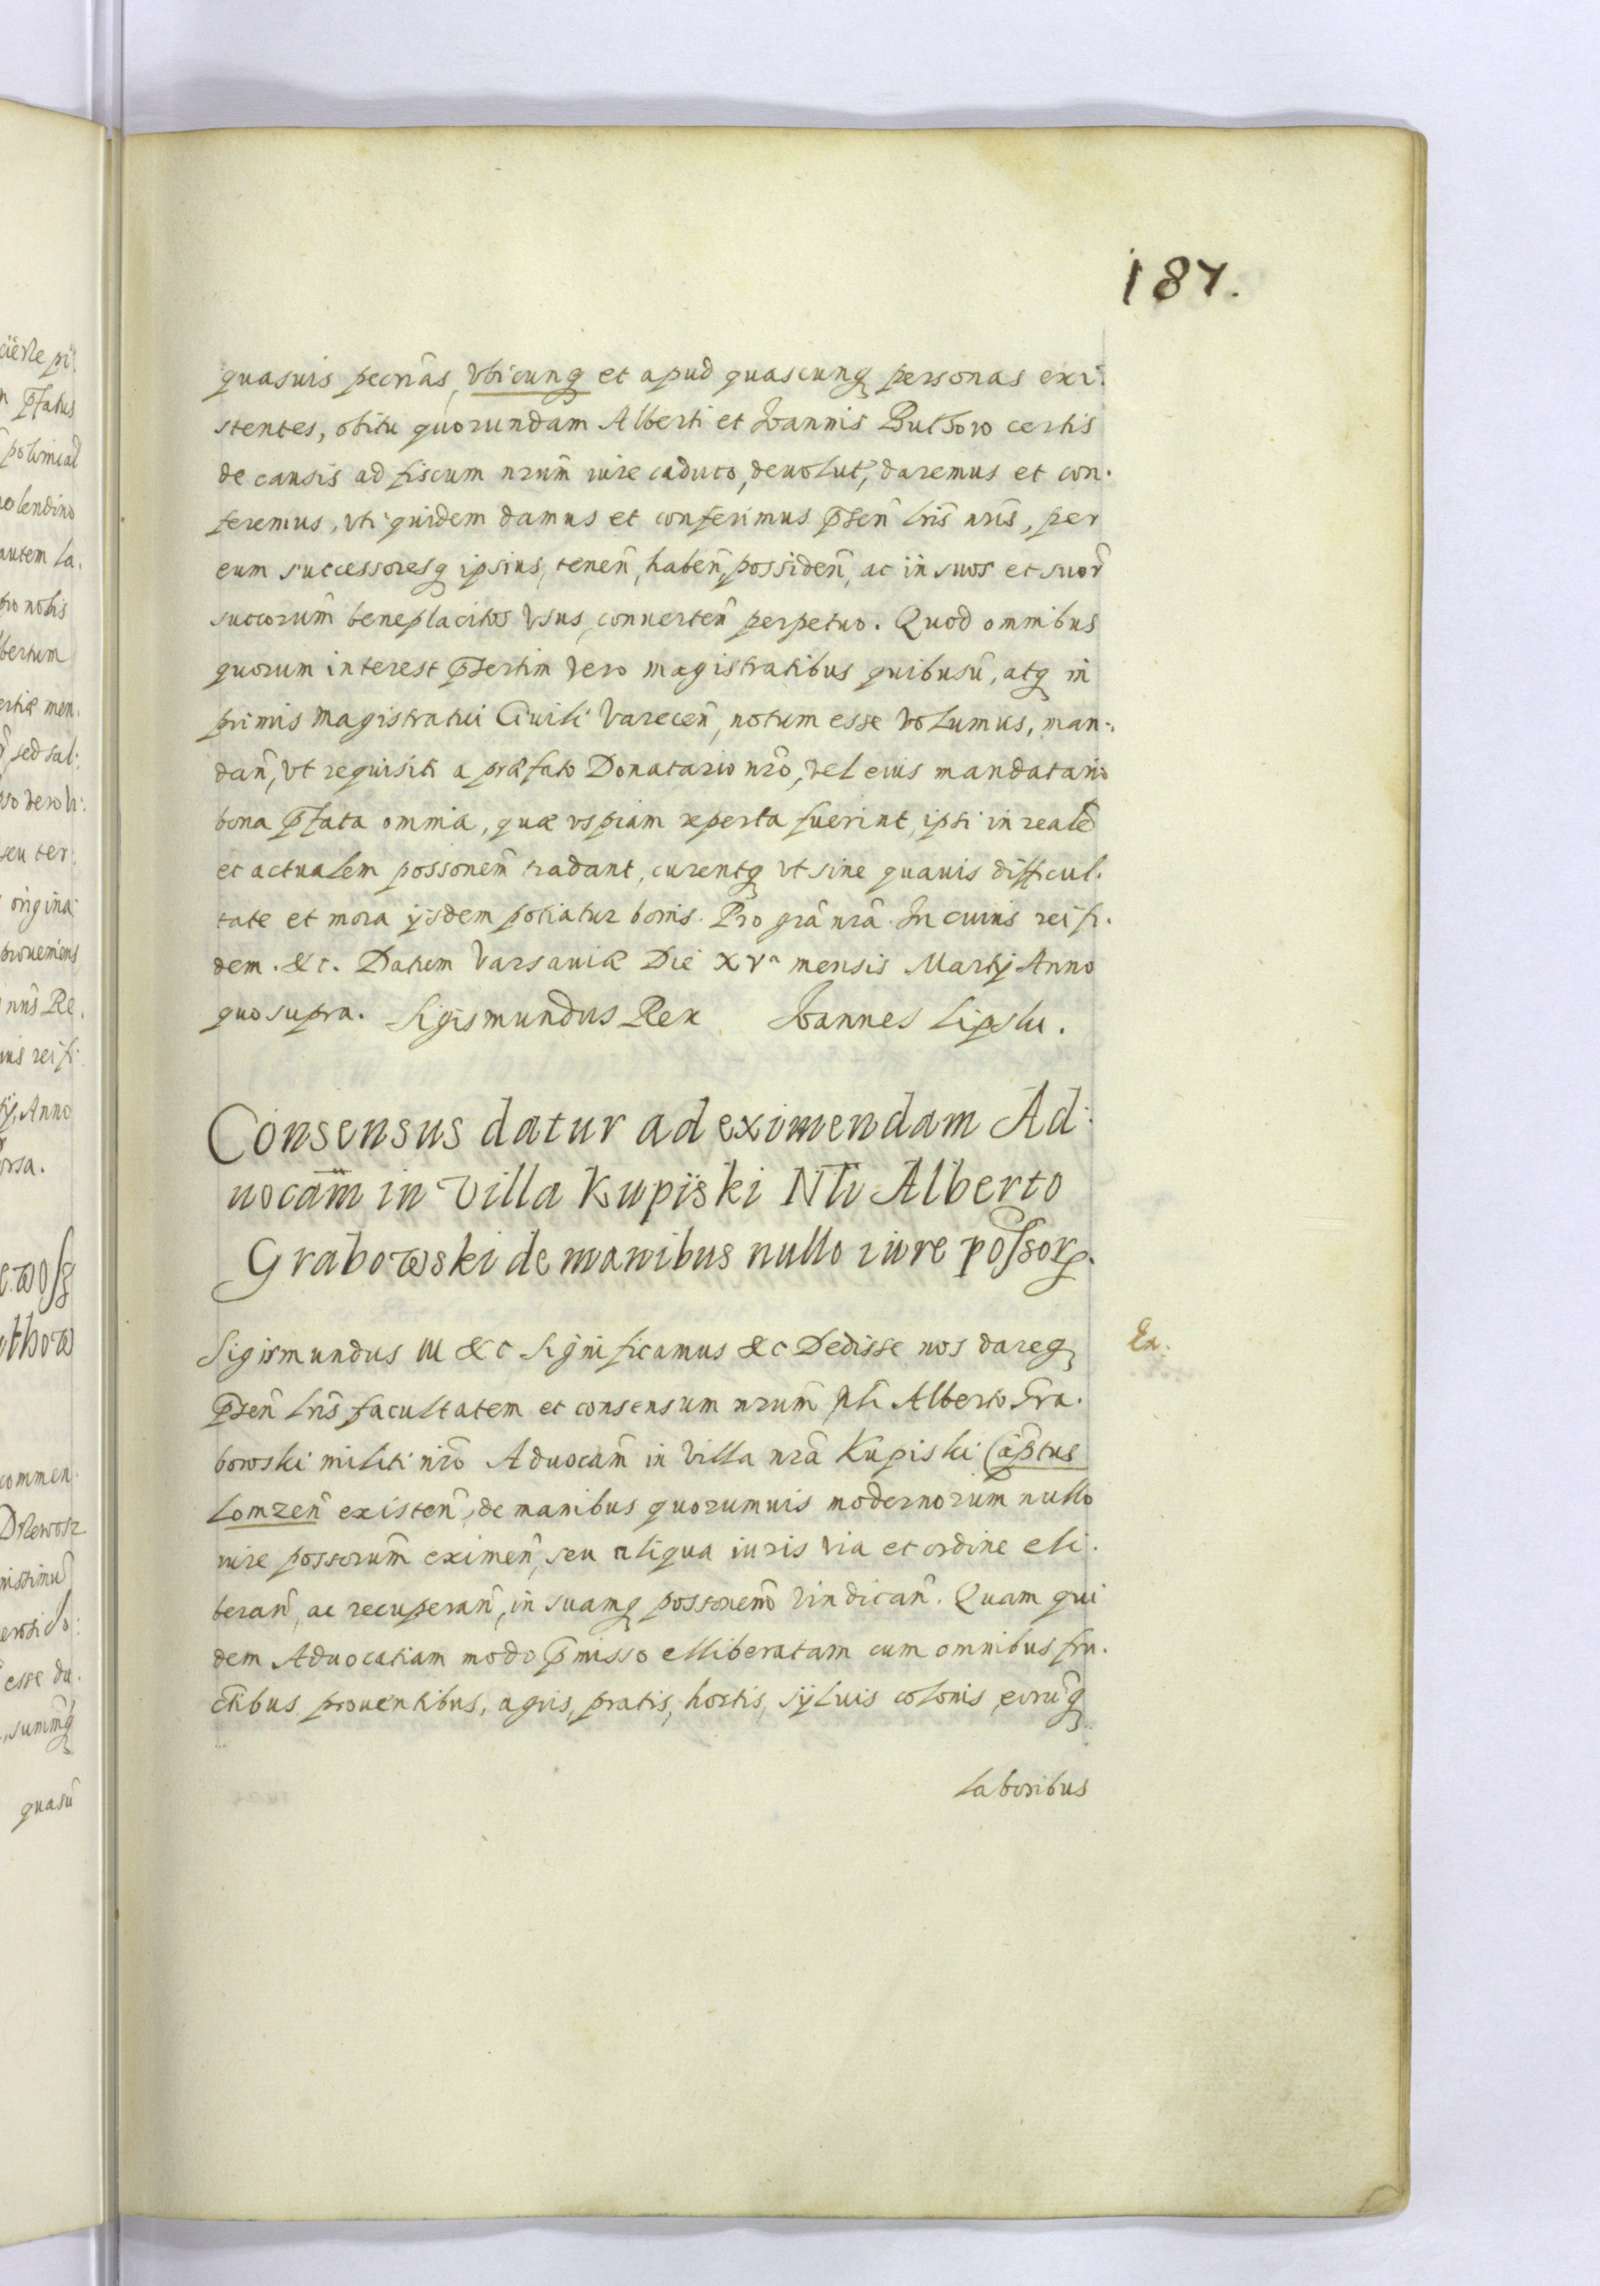 187.
quasuis pecnãs, Vbicunq et apud quascunq personas exi:
stentes, obitu quorundam Alberti et Joannis certis
de causis ad fiscum nrum̃ iure caduco, deuolut, daremus et con.
feremus, vti quidem damus et conferimus p̃sen̄ lris̄ nris̄, per
eum successoresq ipsius, tenen̄, haben̄, possiden̄, ac in suos et suor̃
succorum̃ beneplacitos Vsus, conuerten̄ perpetuo. Quod omnibus
quorum interest p̃sertim vero magistratibus quibusũ, atq in
primis Magistratui Ciuili Varecen̄, notum esse volumus, man:
dan̄, vt requisiti a præfato Donatario nrõ, vel eius mandatario
bona p̃fata omnia, quæ vspiam reperta fuerint, ipsi in realẽ
et actualem possonem̃ tradant, curentq vt sine quauis difficul.
tate et mora ijsdem potiatur bonis. Pro grã nrã. In cuius rei fi.
dem. &c. Datum Varsauiæ Die XVª mensis Martij Anno
quo supra. Sigismundus Rex Joannes Lipski.
Consensus datur ad eximendam Ad:
uocam̃ in Villa Kupiski Nli Alberto
Grabowski de manibus nullo iure possor.
Sigismundus III &c Significamus &c Dedisse nos dareq
p̃sen̄ lris̄ facultatem et consensum nrum̃ Nli Alberto Gra.
bowski militi nrõ Aduocam̃ in Villa nrã Kupiski Cap̃tus
Lomzen̄ existen̄, de manibus quorumuis modernorum nullo
iure possorum̃ eximen̄, seu aliqua iuris via et ordine eli.
beran̄, ac recuperan̄, in suamq possonem̃ vindican̄. Quam qui
dem Aduocatiam modo p̃misso elliberatam cum omnibus fru.
ctibus prouentibus, agris, pratis, hortis, syluis colonis, eorũq
laboribus
Ex.